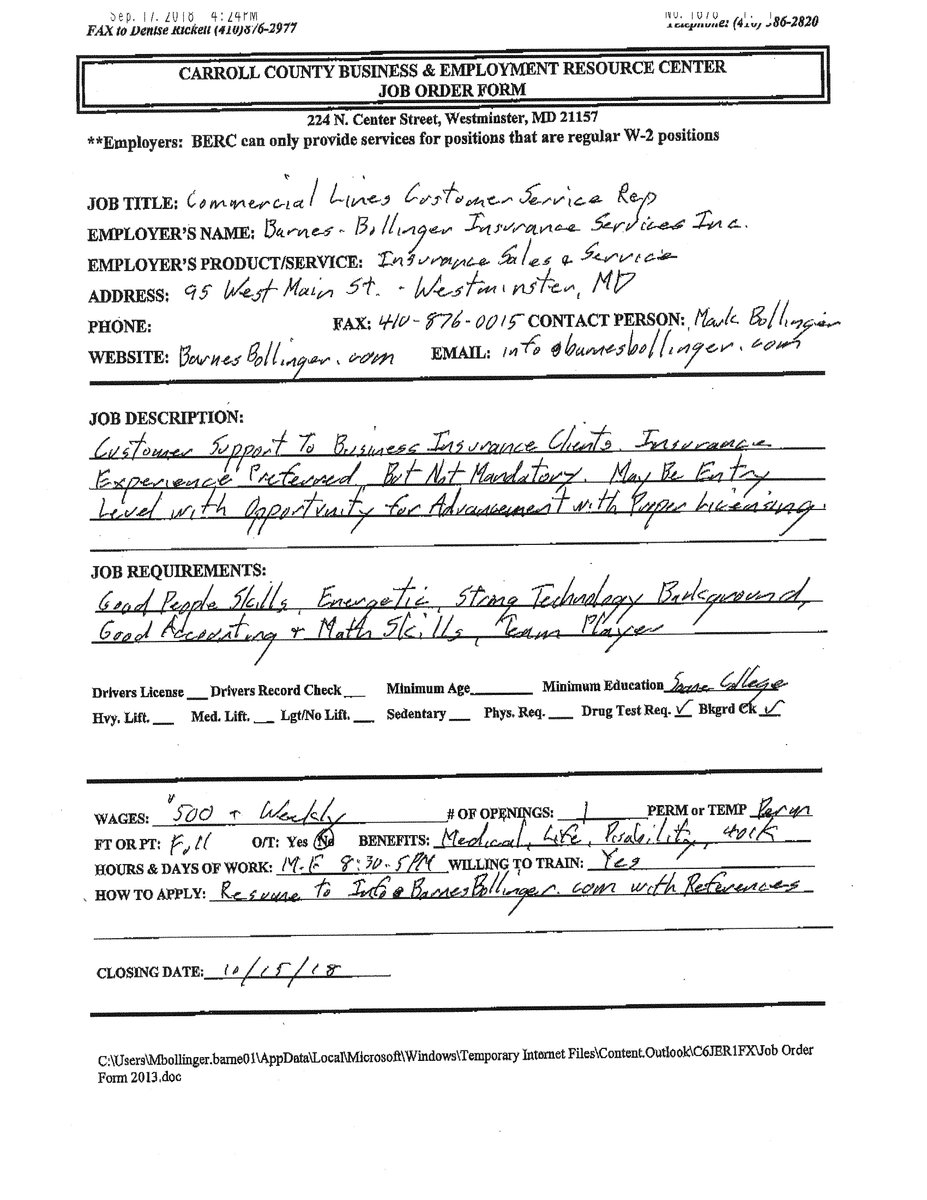 Sep. 17. 2018 4:24PM
FAX to Denise Rickell (410)876-2977
No. 1070
Telephone: (410) 386-2820
CARROLL COUNTY BUSINESS & EMPLOYMENT RESOURCE CENTER
JOB ORDER FORM
224 N. Center Street, Westminster, MD 21157
**Employers: BERC can only provide services for positions that are regular W-2 positions
JOB TITLE: Commercial Lines Customer Service Rep
EMPLOYER'S NAME: Barnes-Bollinger Insurance Services Inc.
EMPLOYER'S PRODUCT/SERVICE: Insurance Sales & Service
ADDRESS: 95 West Main St. - Westminster, MD
PHONE: FAX: 410-876-0015 CONTACT PERSON: Mark Bollinger
WEBSITE: BarnesBollinger.com EMAIL: info@barnesbollinger.com
JOB DESCRIPTION:
Customer Support To Business Insurance Clients. Insurance
Experience Preferred, But Not Mandatory. May Be Entry
Level with Opportunity for Advancement with Proper Licensing.
JOB REQUIREMENTS:
Good People Skills, Energetic, Strong Technology Background,
Good Accounting + Math Skills, Team Player
Drivers License ___ Drivers Record Check ___ Minimum Age ___ Minimum Education Some College
Hvy. Lift. ___ Med. Lift. ___ Lgt/No Lift. ___ Sedentary ___ Phys. Req. ___ Drug Test Req. ✓ Bkgrd Ck ✓
WAGES: $500 + Weekly # OF OPENINGS: 1 PERM or TEMP Perm
FT OR PT: Full O/T: Yes No BENEFITS: Medical, Life, Disability, 401K
HOURS & DAYS OF WORK: M-F 8:30-5PM WILLING TO TRAIN: Yes
HOW TO APPLY: Resume to Info@BarnesBollinger.com with References
CLOSING DATE: 10/15/18
C:\Users\Mbollinger.barne01\AppData\Local\Microsoft\Windows\Temporary Internet Files\Content.Outlook\C6JER1FX\Job Order
Form 2013.doc